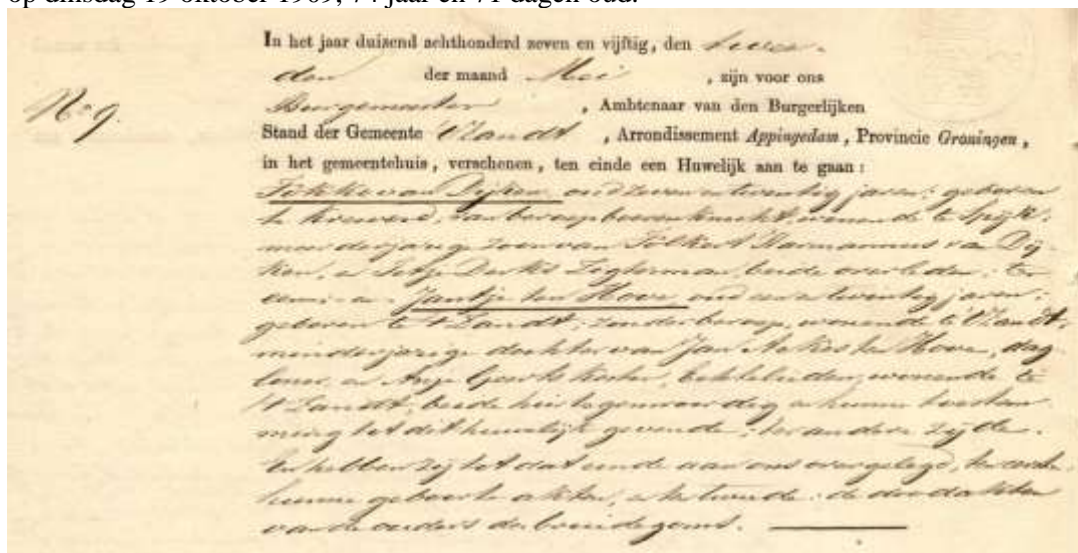 op dinsdag 19 oktober 1909, 74 jaar en 71 dagen oud.
In het jaar duizend achthonderd zeven en vijftig, den twee-
den der maand Mei , zijn voor ons
No 9. Burgemeester , Ambtenaar van den Burgerlijken
Stand der Gemeente 't Zandt , Arrondissement Appingedam, Provincie Groningen,
in het gemeentehuis, verschenen, ten einde een Huwelijk aan te gaan:
Fokke van Dijken oud zeven en twintig jaren; geboren
te Krewerd, van beroep boerenknecht, wonende te Spijk,
meerderjarige zoon van Folkert Harmannus van Dij-
ken, en Jetje Derks Ligterman, beide overleden; ter
eenre en Jantje ten Hove oud een en twintig jaren;
geboren te 't Zandt, zonder beroep, wonende te 't Zandt,
minderjarige dochter van Jan ten Hove, dag-
loner, en Geerts Koster, echtelieden, wonende te
't Zandt, beide hier tegenwoordig en hunne toestem-
ming tot dit huwelijk gevende, ter andere zijde.
En hebben zij tot dat einde aan ons overgelegd, ten eerste
hunne geboorte akten, en ten tweede de doodakten
van de ouders des bruidegoms.